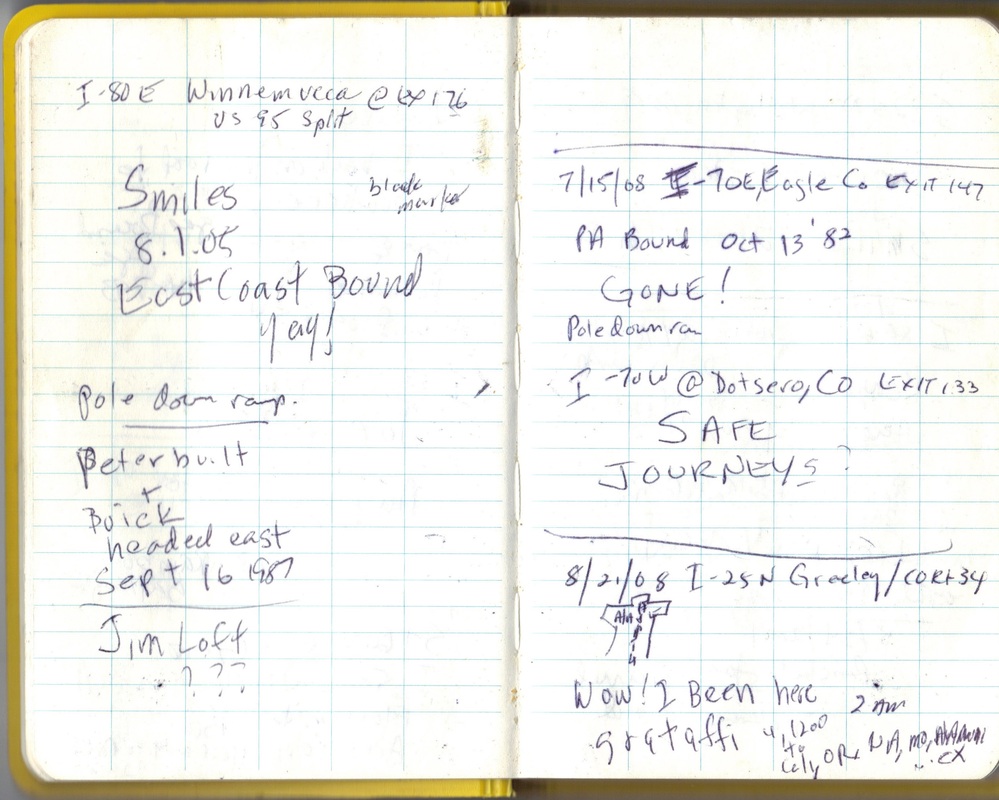 I-80 E Winnemucca @ EX 176
US 95 Split
Smiles
black
marker
8.1.05
East Coast Bound
yay!
pole down ramp.
Peterbuilt
+
Buick
headed east
Sept 16 1987
Jim Loft
? ? ?
7/15/08 I-70E, Eagle Co EXIT 147
PA Bound Oct 13 '82
GONE!
Pole down ram
I-70W @ Dotsero, CO EXIT 133
SAFE
JOURNEYS?
8/21/08 I-25N Greeley / CO Rt 34
Wow! I Been here 2 am
grataffi
to
OR, MO,